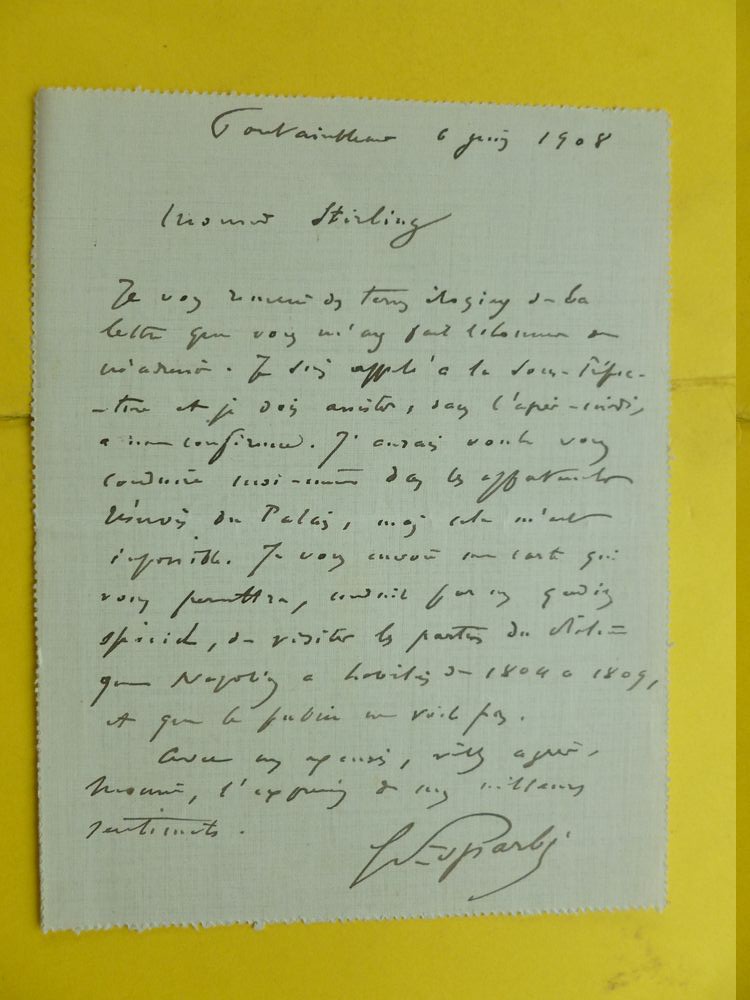 Fontainebleau 6 juin 1908
Monsieur Stirling
Je vous remercie des termes élogieux de la
lettre que vous m'avez fait l'honneur de
m'adresser. Je suis appelé à la Sous-Préfec-
-ture et je dois assister, dans l'après-midi,
à une conférence. J'aurais voulu vous
conduire moi-même dans les appartements
réservés du Palais, mais cela m'est
impossible. Je vous envoie une carte qui
vous permettra, conduit par un gardien
spécial, de visiter les parties du château
que Napoléon a habitées de 1804 à 1809,
et que le public ne voit pas.
Avec mes excuses, veuillez agréer,
Monsieur, l'expression de mes meilleurs
sentiments.
d'Esparbès